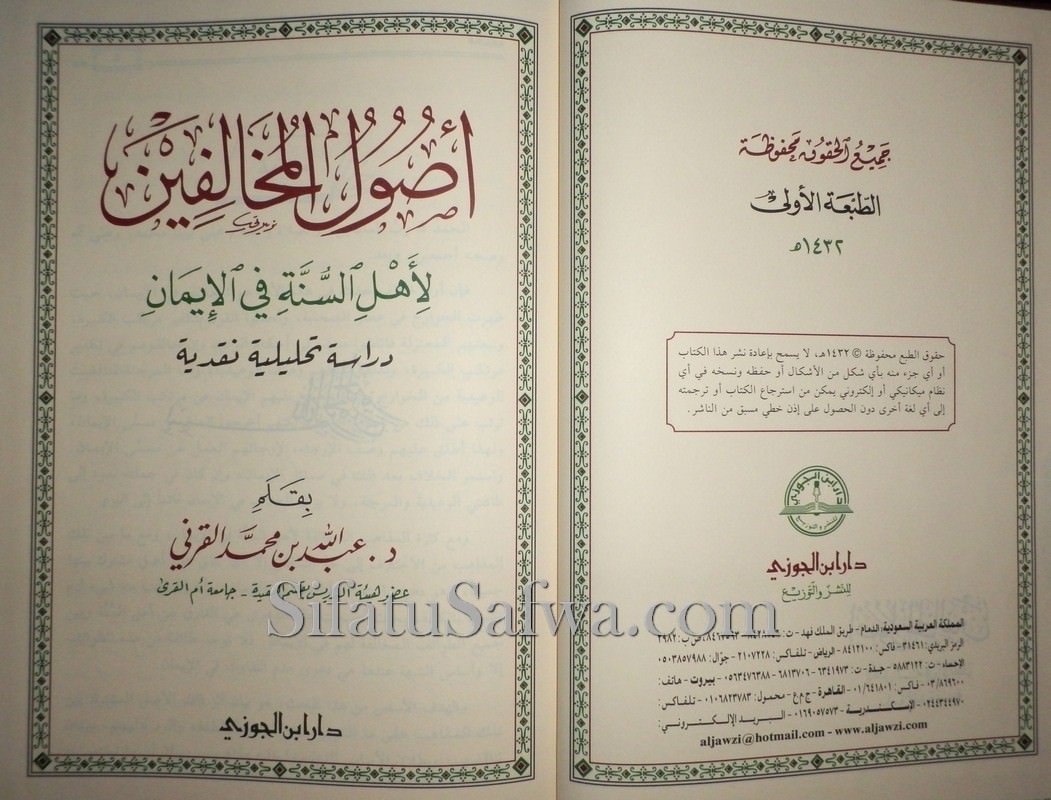 جميع الحقوق محفوظة
الطبعة الأولى
١٤٣٢هـ
حقوق الطبع محفوظة © ١٤٣٢هـ، لا يسمح بإعادة نشر هذا الكتاب
أو أي جزء منه بأي شكل من الأشكال أو حفظه ونسخه في أي
نظام ميكانيكي أو إلكتروني يمكن من استرجاع الكتاب أو ترجمته
إلى أي لغة أخرى دون الحصول على إذن خطي مسبق من الناشر.
دار ابن الجوزي
للنشر والتوزيع
دار ابن الجوزي
للنشر والتوزيع
المملكة العربية السعودية: الدمام - طريق الملك فهد - ت: ص ب: ٢٩٨٢
الرمز البريدي: ٣١٤٦١ - فاكس: ٨٤١٢١٠٠ - الرياض - تلفاكس: ٢١٠٧٢٢٨ - جوال: ٠٥٠٣٨٥٧٩٨٨
الإحساء - ت: ٥٨٨٣١٢٢ - جدة - ت: ٦٣٤١٩٧٣ - ٦٨١٣٧٠٦ - ٠٥٦٣٤٧٦٣٨٨ - بيروت - هاتف:
٠٣/٨٦٩٦٠٠ - فاكس: ٠١/٦٤١٨٠١ - القاهرة - ج م ع - محمول: ٠١٠٦٨٢٣٧٨٣ - تلفاكس:
٠٢٤٤٣٤٤٩٧٠ - الإسكندرية - ٠١٦٩٠٥٧٥٧٣ - البريد الإلكتروني:
aljawzi@hotmail.com - www.aljawzi.com
أُصُولُ المُخَالِفِينَ
لِأَهْلِ السُّنَّةِ فِي الإِيمَانِ
دراسة تحليلية نقدية
بِقَلَمِ
د. عبد الله بن محمد القرني
عضو هيئة التدريس بقسم العقيدة - جامعة أم القرى
SifatuSafwa.com
دار ابن الجوزي